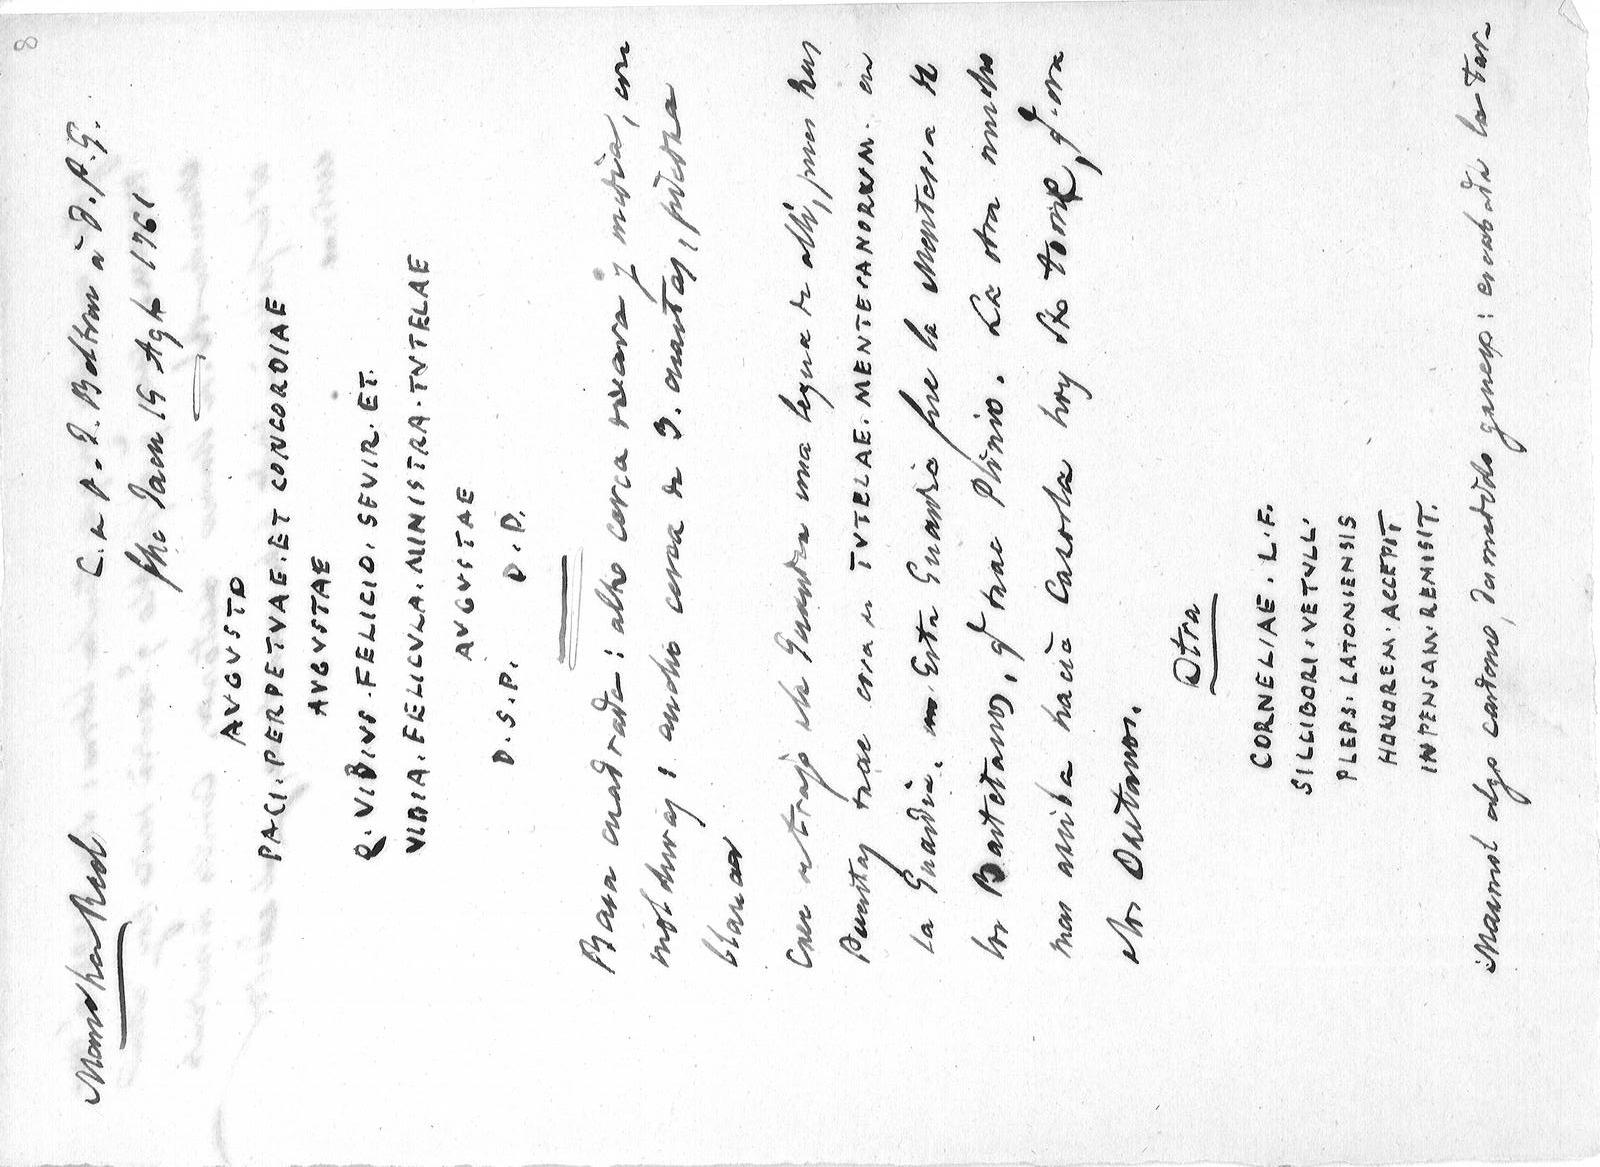 8
Mancha Real
C. de P. F. Beltran à D. A. G.
fho Jaen 19 Agto 1761
AVGVSTO
PACI. PERPETVAE. ET CONCORDIAE
AVGVSTAE
Q. VIBIVS. FELICIO. SEVIR. ET.
VIBIA. FELICVLA. MINISTRA. TVTELAE
AVGVSTAE
D. S. P. D. D.
Basa cuadrada: alto cerca de vara y media, con
molduras; ancho cerca de 3. cuartas, piedra
blanca
Cree se trajo de la Guardia una legua de allí, pues Ruy
Puertas trae era de TVTELAE. MENTECANORVM. en
la Guardia. Esta Guardia fue la Mentesa de
los Bastetanos, q trae Plinio. La otra mucho
mas arriba hacia Cazorla hoy Sto tome, q. era
de los Oretanos.
Otra
CORNELIAE. L. F.
SILLIBORI. VETVLL'
PLEPS. LATONIENSIS
HONOREM. ACCEPIT
INPENSAM. REMISIT.
Marmol algo cardeno, jametado grueso: escabada la tar-